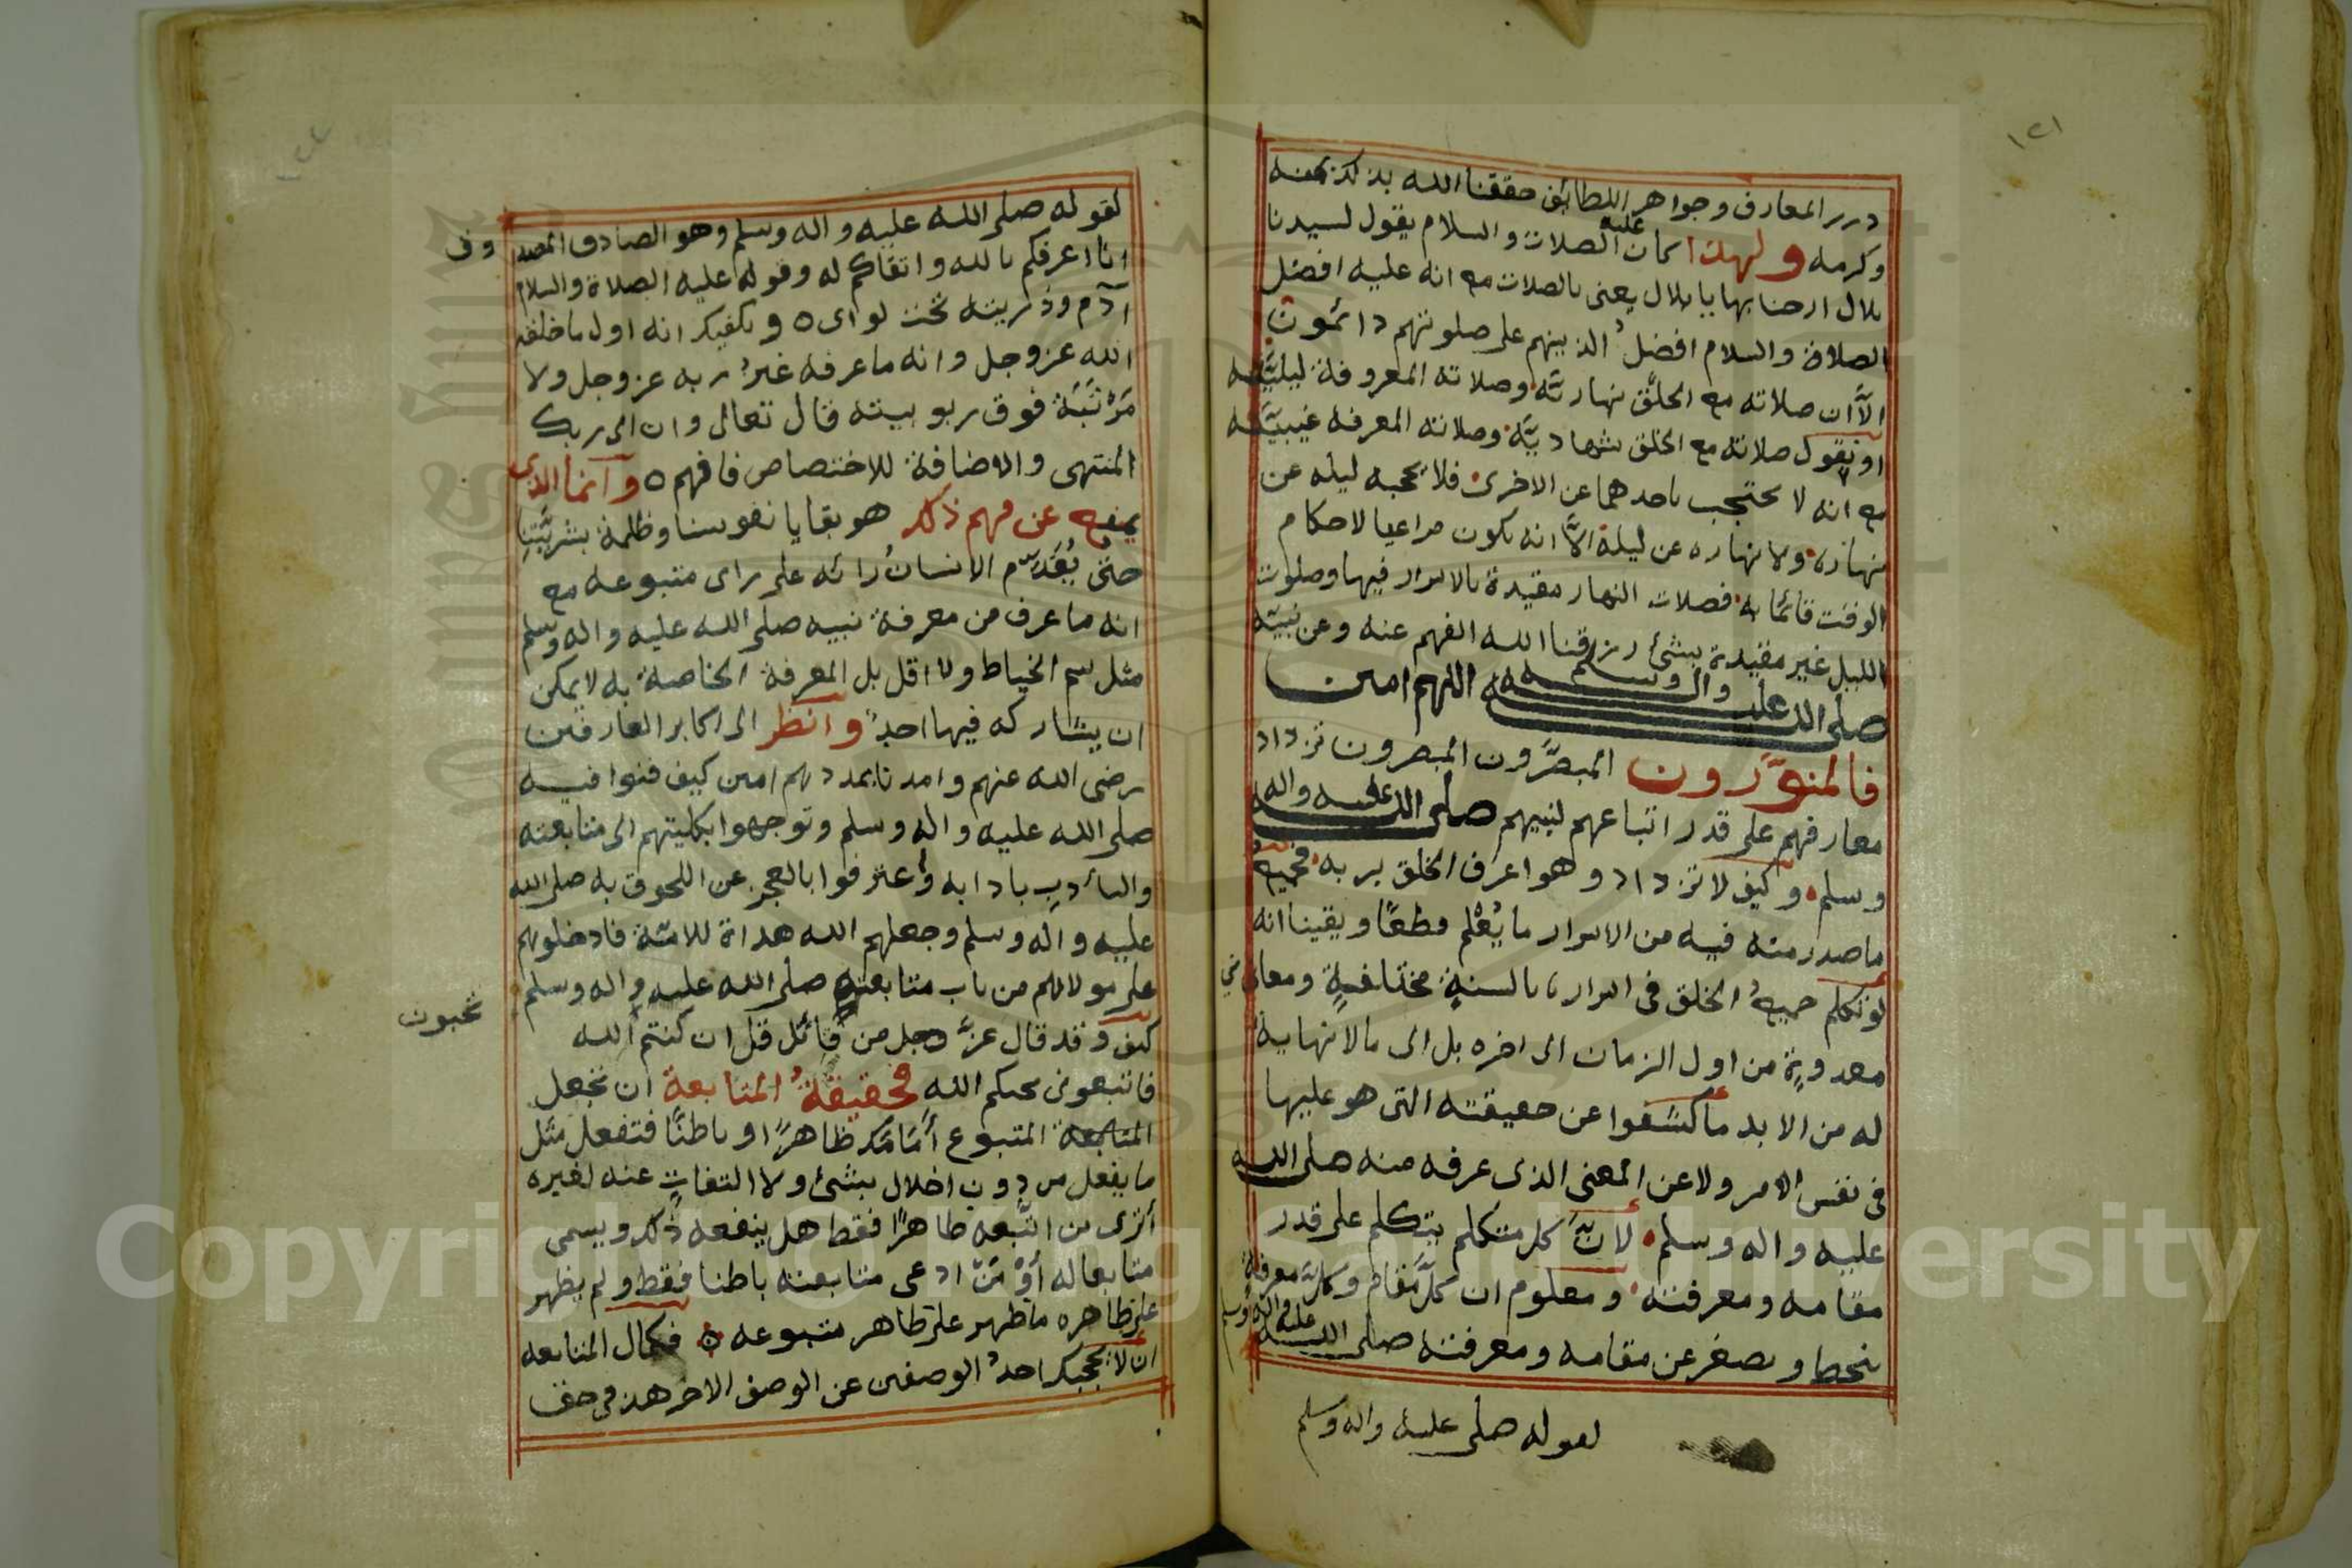 ١٢١
درر المعارف وجواهر اللطائف حققنا الله بذلك بمنه
وكرمه ولهذا كان عليه الصلات والسلام يقول لسيدنا
بلال ارحنا بها يا بلال يعنى بالصلات مع انه عليه افضل
الصلاة والسلام افضل الذينهم على صلوتهم دائمون
الاَّ ان صلاته مع الخلق نهاريَّة وصلاته المعروفة ليليَّة
او نقول صلاته مع الخلق شهاديَّة وصلاته المعرفه غيبيَّة
مع انه لا يحتجب باحدهما عن الاخرى فلا يحجبه ليله عن
نهاره ولا نهاره عن ليلة الاَّ انه يكون مراعيا لاحكام
الوقت قائما به فصلات النهار مقيدة بالاسرار فيها وصلوت
الليل غير مقيدة بشئ رزقنا الله الفهم عنه وعن نبيّه
صلى الله عليه واله وسلم اللهم امين
فالمنوَّرون المبصَّرون المبصرون تزداد
معارفهم على قدر اتباعهم لنبيهم صلى الله عليه واله
وسلم وكيف لا تزداد وهو اعرف الخلق بربه فجميع
ما صدر منه فيه من الاسرار ما يُعْلم قطعًا ويقينا انه
لو تكلم جميعُ الخلق فى اسراره بالسنةٍ مختلفةٍ ومعانى
معدودةٍ من اول الزمان الى اخره بل الى مالا نهاية
له من الابد ما كشفوا عن حقيقته التى هو عليها
فى نفس الامر ولا عن المعنى الذى عرفه منه صلى الله
عليه واله وسلم لانَّ كل متكلم يتكلم على قدر
مقامه ومعرفته ومعلوم ان كلَّ مقام وكلَّ معرفة
ينحط ويصغر عن مقامه ومعرفته صلى الله عليه واله وسلم
لقوله صلى عليه واله وسلم
١٢٢
لقوله صلى الله عليه واله وسلم وهو الصادق المصدوق
انا اعرفكم بالله واتقاكم له وقوله عليه الصلاة والسلام
آدم وذريته تحت لواى ٥ ويكفيك انه اول ما خلقه
الله عز وجل وانه ما عرفه غيرُ ربه عز وجل ولا
مَرْتَبَة فوق ربوبيته قال تعالى وان الى ربك
المنتهى والاضافة للاختصاص فافهم ٥ وانما الذى
يمنع عن فهم ذلك هو بقايا نفوسنا وظلمة بشريَّتِنا
حتى يُقَدِّم الانسانُ رائه على راى متبوعه مع
انه ما عرف من معرفة نبيه صلى الله عليه واله وسلم
مثل سم الخياط ولا اقل بل المعرفة الخاصة به لا يمكن
ان يشاركه فيها احدٌ وانظر الى اكابر العارفين
رضى الله عنهم وامدنا بمددهم امين كيف فنوا فيه
صلى الله عليه واله وسلم وتوجهوا بكليتهم الى متابعته
والتأدبِ بادابه وأعترفوا بالعجز عن اللحوق به صلى الله
عليه واله وسلم وجعلهم الله هداة للامّة فادخلوهم
على مولاهم من باب متابعته صلى الله عليه واله وسلم
كيف وقد قال عزَّ وجل من قائل قل ان كنتم الله
تحبون
فاتبعونى يحبكم الله فحقيقةُ المتابعة ان تجعل
المتابعة المتبوع أَمَامَك ظاهرًا وباطنًا فتفعل مثل
ما يفعل من دون اخلال بشئ ولا التفاتٍ عنه لغيره
أترى من اتَّبعه ظاهرًا فقط هل ينفعه ذلك ويسمى
متابعا له أوْ مَنْ ادعى متابعته باطنا فقط ولم يظهر
على ظاهره ما ظهر على ظاهر متبوعه ٥ فكمال المتابعه
ان لا يحجبك احدُ الوصفين عن الوصف الاخر هذ فى حق
Copyright © King Saud University